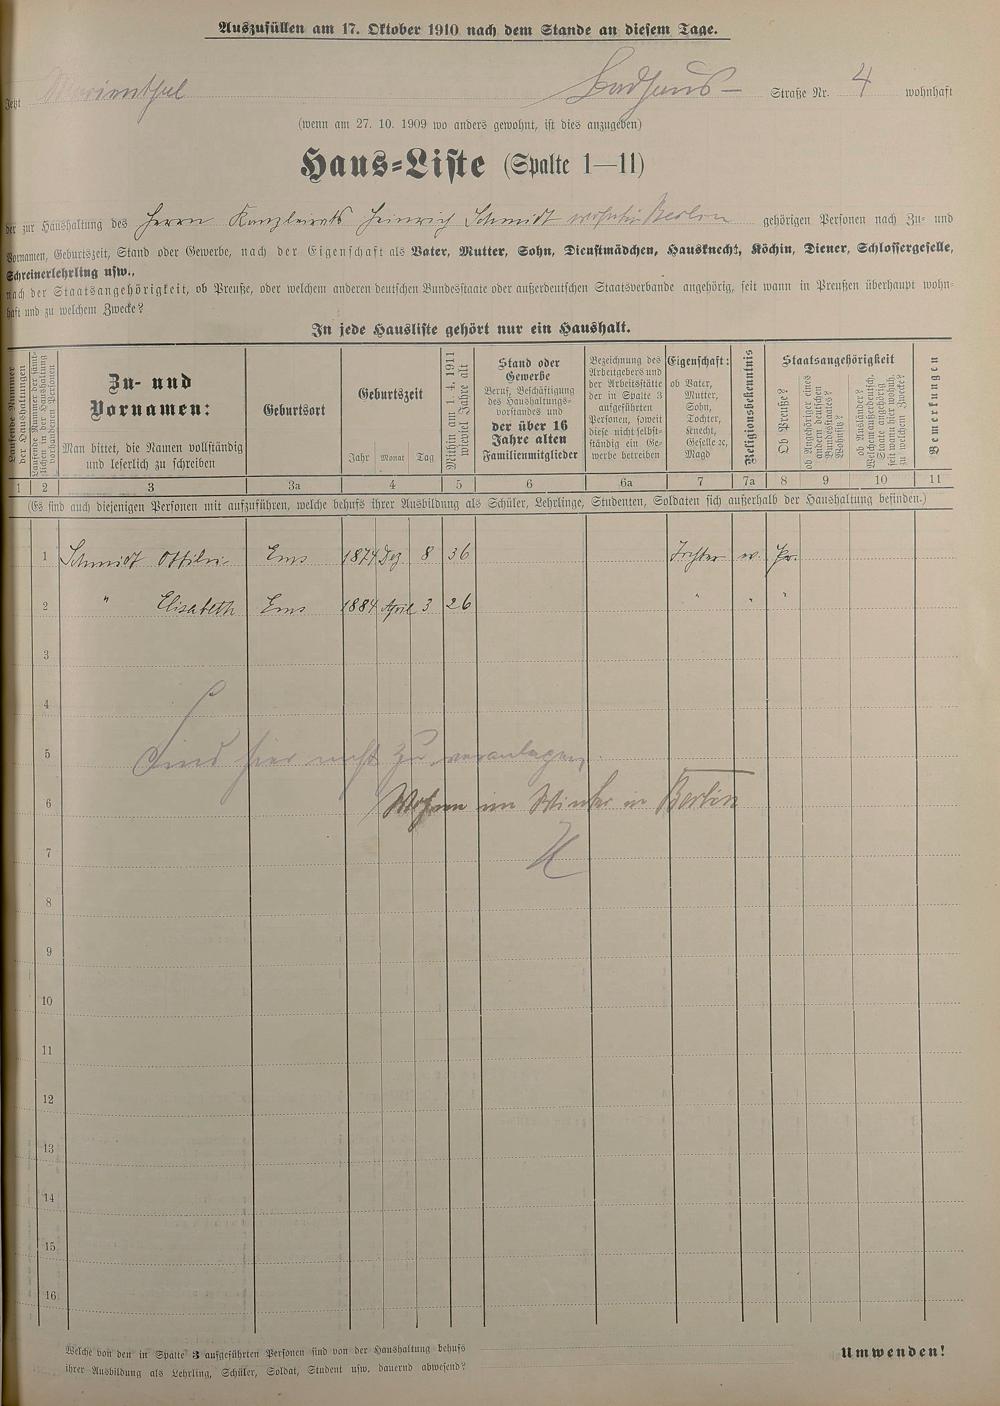 Auszufüllen am 17. Oktober 1910 nach dem Stande an diesem Tage.
Jetzt Marienthal Badhaus- Straße Nr. 4 wohnhaft
(wenn am 27. 10. 1909 wo anders gewohnt, ist dies anzugeben)
Haus-Liste (Spalte 1—11)
der zur Haushaltung des Herrn Kanzleirats Heinrich Schmidt wohnh. in Berlin gehörigen Personen nach Zu- und
Vornamen, Geburtszeit, Stand oder Gewerbe, nach der Eigenschaft als Vater, Mutter, Sohn, Dienstmädchen, Hausknecht, Köchin, Diener, Schlossergeselle,
Schreinerlehrling usw.,
nach der Staatsangehörigkeit, ob Preuße, oder welchem anderen deutschen Bundesstaate oder außerdeutschen Staatsverbande angehörig, seit wann in Preußen überhaupt wohn-
haft und zu welchem Zwecke?
In jede Hausliste gehört nur ein Haushalt.
Laufende Nummer
der Haushaltungen
Laufende Nummer der sämt-
lichen in der Haushaltung
vorhandenen Personen
Zu- und
Vornamen:
Man bittet, die Namen vollständig
und leserlich zu schreiben
Geburtsort
Geburtszeit
Jahr Monat Tag
Mithin am 1. 4. 1911
wieviel Jahre alt
Stand oder
Gewerbe
Beruf, Beschäftigung
des Haushaltungs-
vorstandes und
der über 16
Jahre alten
Familienmitglieder
Bezeichnung des
Arbeitgebers und
der Arbeitsstätte
der in Spalte 3
aufgeführten
Personen, soweit
diese nicht selbst-
ständig ein Ge-
werbe betreiben
Eigenschaft:
ob Vater,
Mutter,
Sohn,
Tochter,
Knecht,
Geselle ec,
Magd
Religionsbekenntnis
Staatsangehörigkeit
Ob Preuße?
ob Angehöriger eines
andern deutschen
Bundesstaates?
Wohnsitz?
ob Ausländer?
Welchem außerdeutsch.
Staate angehörig
seit wann hier wohnh.
zu welchem Zwecke?
Bemerkungen
1 2 3 3a 4 5 6 6a 7 7a 8 9 10 11
(Es sind auch diejenigen Personen mit aufzuführen, welche behufs ihrer Ausbildung als Schüler, Lehrlinge, Studenten, Soldaten sich außerhalb der Haushaltung befinden.)
1 Schmidt Ottilie Ems 1874 Dez 8 36 Tochter ev. Pr.
2 " Elisabeth Ems 1884 April 3 26 " " "
3
4
5 Sind hier nicht zu veranlagen.
6 Wohnen im Winter in Berlin
7
8
9
10
11
12
13
14
15
16
Welche von den in Spalte 3 aufgeführten Personen sind von der Haushaltung behufs
ihrer Ausbildung als Lehrling, Schüler, Soldat, Student usw. dauernd abwesend?
Umwenden!